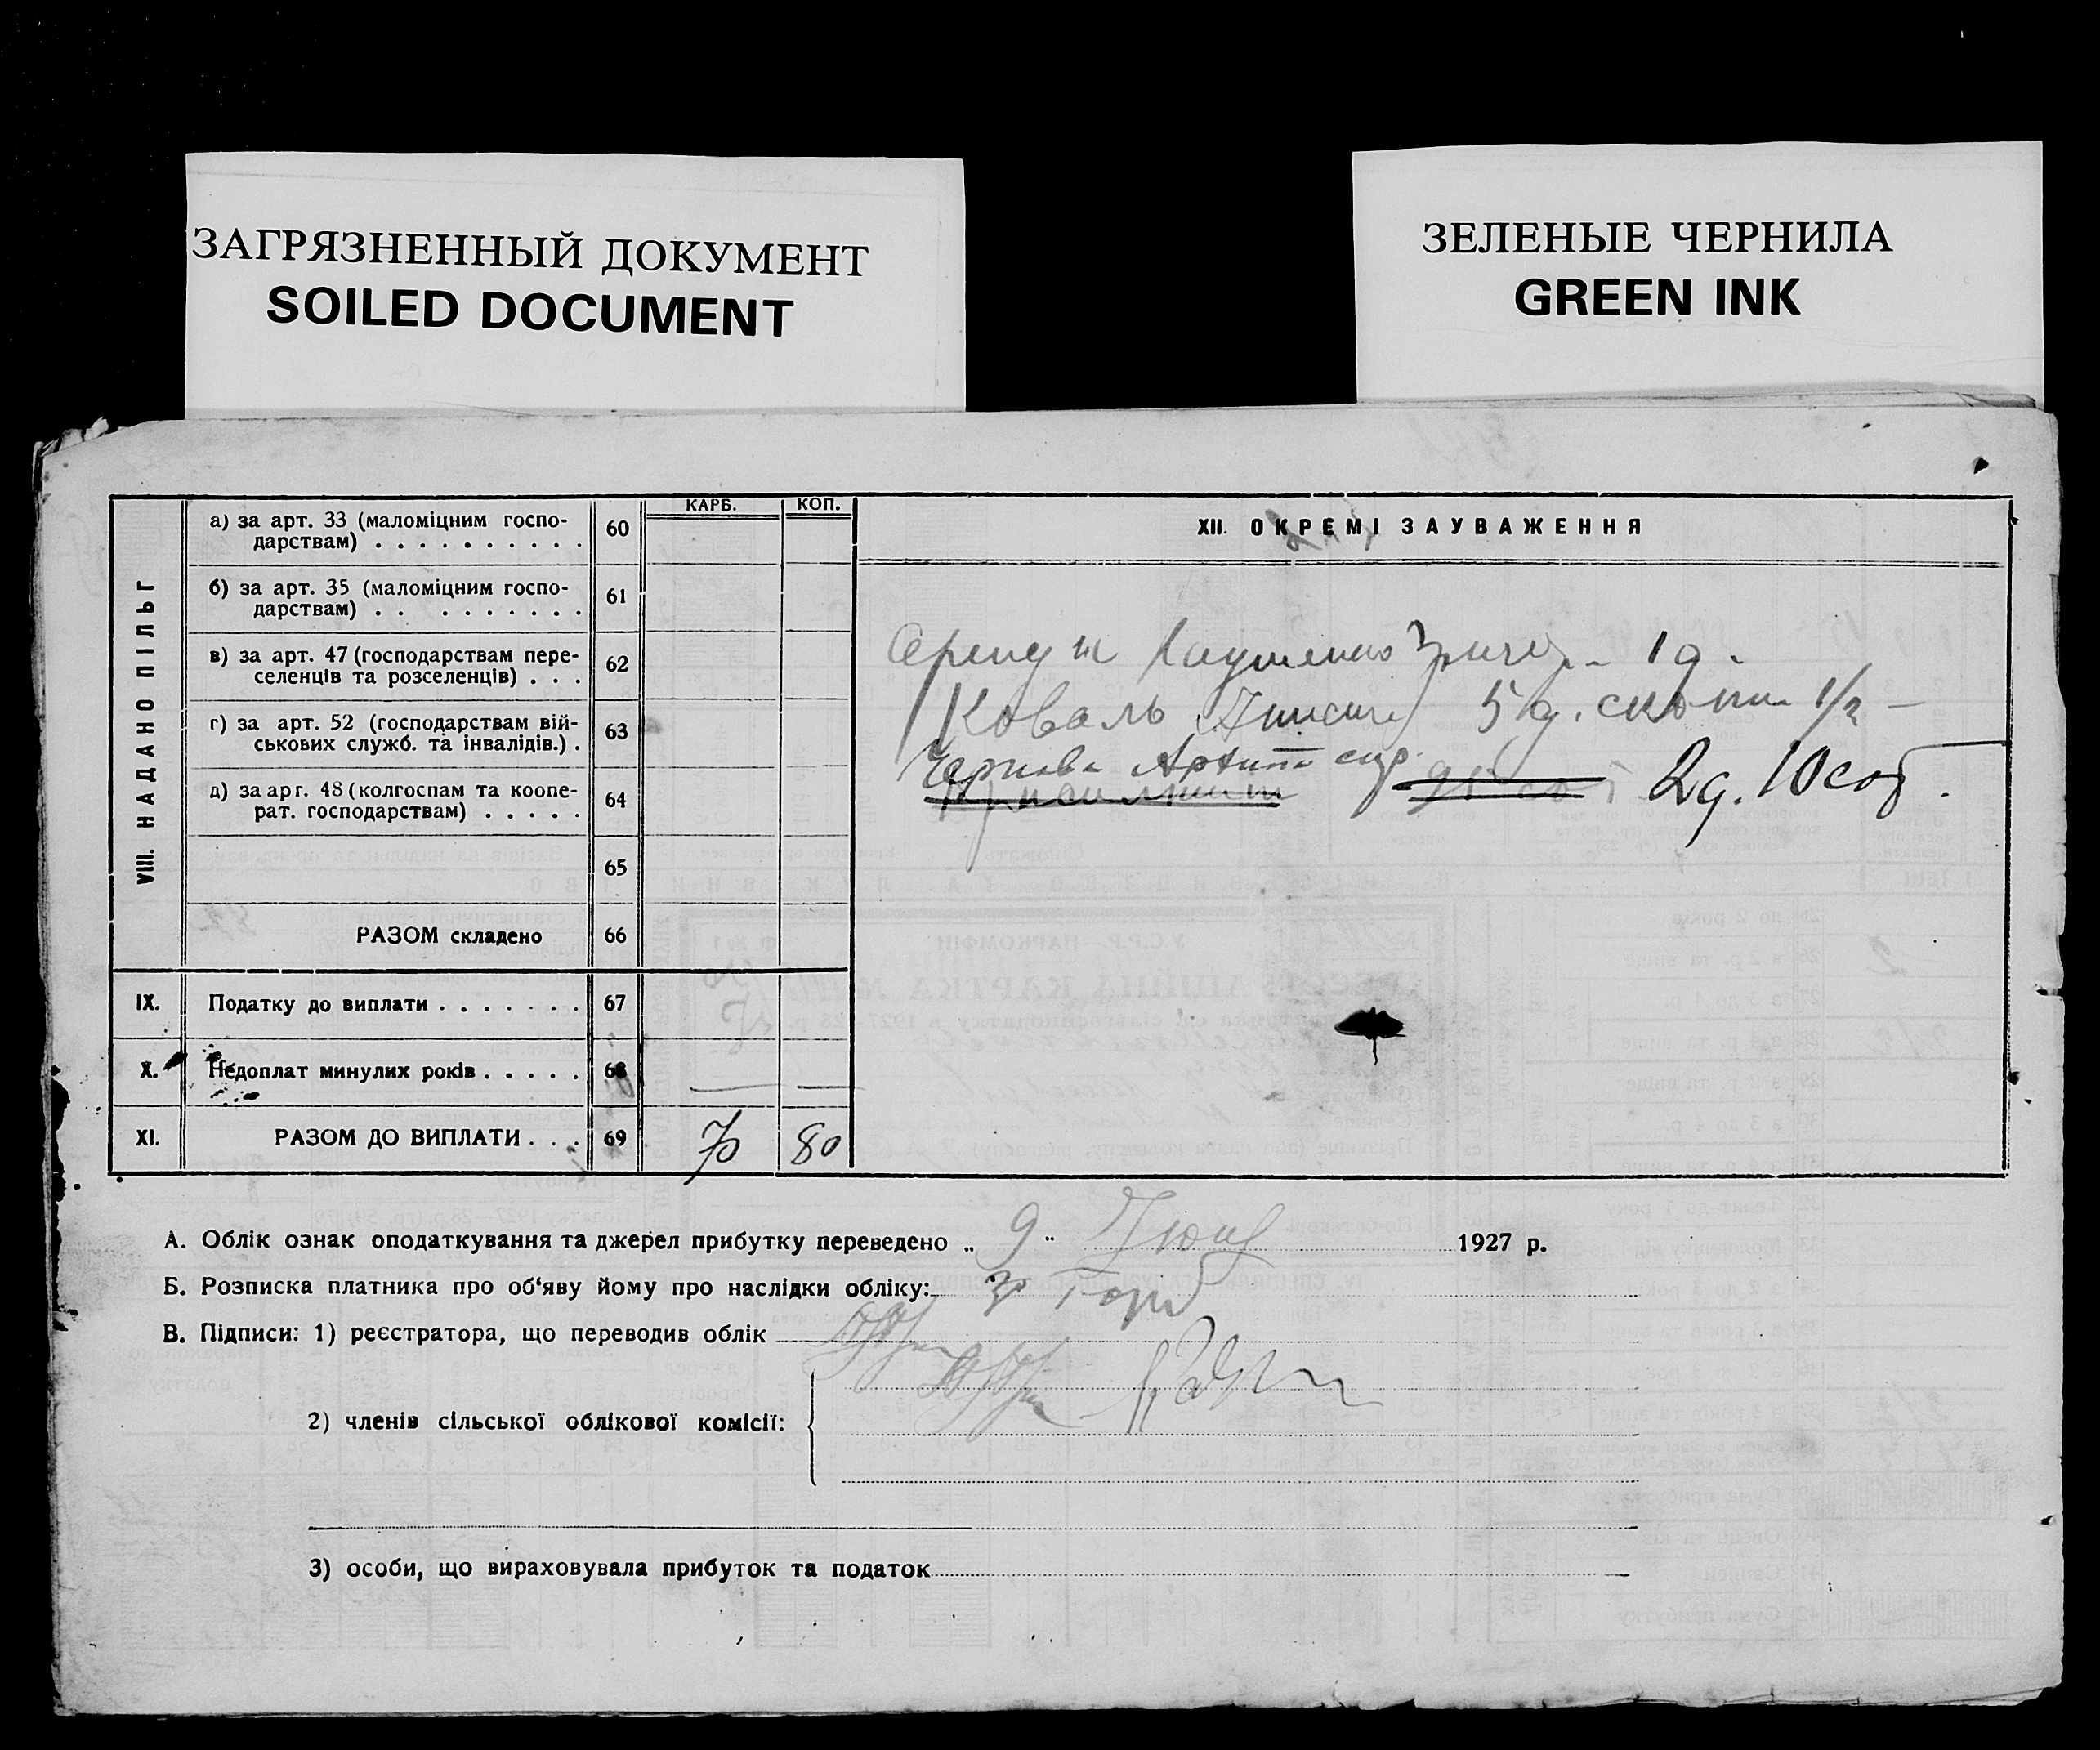 ЗАГРЯЗНЕННЫЙ ДОКУМЕНТ
SOILED DOCUMENT
ЗЕЛЕНЫЕ ЧЕРНИЛА
GREEN INK
VIII. НАДАНО ПІЛЬГ
КАРБ. КОП.
а) за арт. 33 (маломіцним госпо-
дарствам) . . . . . . . . . . 60
б) за арт. 35 (маломіцним госпо-
дарствам) . . . . . . . . . 61
в) за арт. 47 (господарствам пере-
селенців та розселенців) . . . 62
г) за арт. 52 (господарствам вій-
ськових служб. та інвалідів.) . 63
д) за арг. 48 (колгоспам та коопе-
рат. господарствам) . . . . . 64
65
РАЗОМ складено 66
IX. Податку до виплати . . . . . . . 67
X. Недоплат минулих років . . . . . 68 — —
XI. РАЗОМ ДО ВИПЛАТИ . . . 69 70 80
XII. ОКРЕМІ ЗАУВАЖЕННЯ
1 д.
Коваль 5 д. 1/2 —
2 д. 10 сот.
А. Облік ознак оподаткування та джерел прибутку переведено „ 9 " 1927 р.
Б. Розписка платника про об‘яву йому про наслідки обліку:
В. Підписи: 1) реєстратора, що переводив облік
2) членів сільської облікової комісії:
3) особи, що вираховувала прибуток та податок